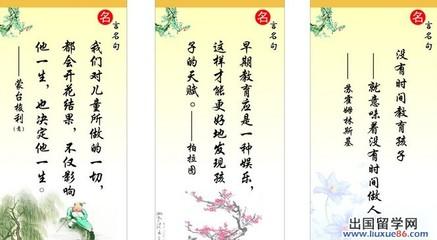 名言名句
我们对儿童所做的一切，
都会开花结果，不仅影响
他一生，也决定他一生。
——蒙台梭利
名言名句
早期教育应是一种娱乐，
这样才能更好地发现孩
子的天赋。——柏拉图
名言名句
没有时间教育孩子
——就意味着没有时间做人
——苏霍姆林斯基
出国留学网
www.liuxue86.com